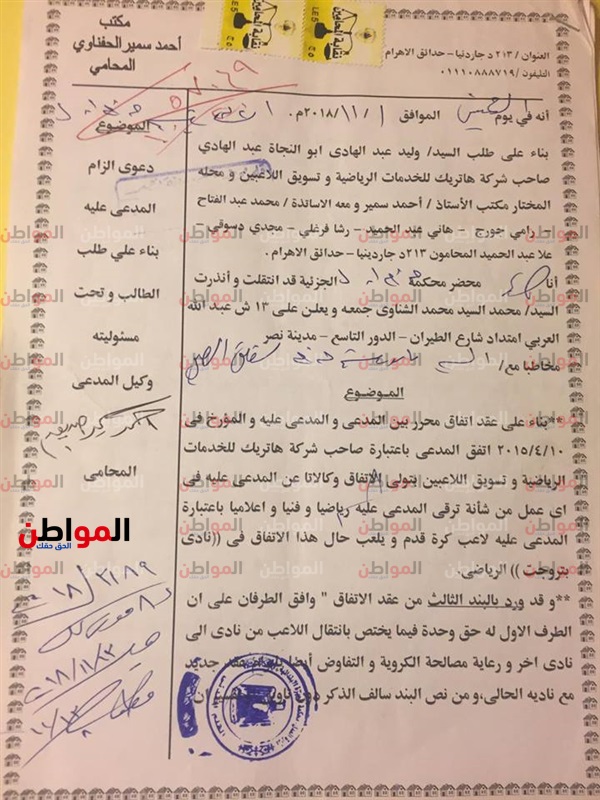 مكتب
أحمد سمير الحفناوي
المحامي
العنوان / ٢١٣ د جاردنيا – حدائق الاهرام
التليفون / ٠١١١٠٨٨٨٧١٩
نقابة المحامين
LE5
٥ع
نقابة المحامين
LE5
٥ع
٥٧٠٦٩
أنه في يوم الخميس الموافق ١ / ١١ / ٢٠١٨م.
بناء على طلب السيد/ وليد عبد الهادى ابو النجاة عبد الهادي
صاحب شركة هاتريك للخدمات الرياضية و تسويق اللاعبين و محله
المختار مكتب الأستاذ / أحمد سمير و معه الاساتذة / محمد عبد الفتاح
– رامي جورج – هاني عبد الحميد – رشا فرغلي – مجدي دسوقي –
علا عبد الحميد المحامون ٢١٣د جاردينيا – حدائق الاهرام.
أنا محضر محكمة الجزئية قد انتقلت و أنذرت
السيد/ محمد السيد محمد الشناوى جمعه و يعلن على ١٣ ش عبد الله
العربي امتداد شارع الطيران – الدور التاسع – مدينة نصر
مخاطبا مع/
الموضوع
**بناء على عقد اتفاق محرر بين المدعى و المدعى عليه و المؤرخ فى
٢٠١٥/٤/١٠ اتفق المدعى باعتبارة صاحب شركة هاتريك للخدمات
الرياضية و تسويق اللاعبين بتولى الاتفاق وكالاتا عن المدعى عليه فى
اى عمل من شأنة ترقى المدعى عليه رياضيا و فنيا و اعلاميا باعتبارة
المدعى عليه لاعب كرة قدم و يلعب حال هذا الاتفاق فى ((نادى
بتروجت )) الرياضى.
**و قد ورد بالبند الثالث من عقد الاتفاق " وافق الطرفان على ان
الطرف الاول له حق وحدة فيما يختص بانتقال اللاعب من نادى الى
نادى اخر و رعاية مصالحة الكروية و التفاوض أيضا بابرام عقد جديد
مع ناديه الحالى،و من نص البند سالف الذكر
الموضوع
دعوى الزام
المدعى عليه
بناء علي طلب
الطالب و تحت
مسئوليته
وكيل المدعى
المحامى
المواطن
الحق حقك